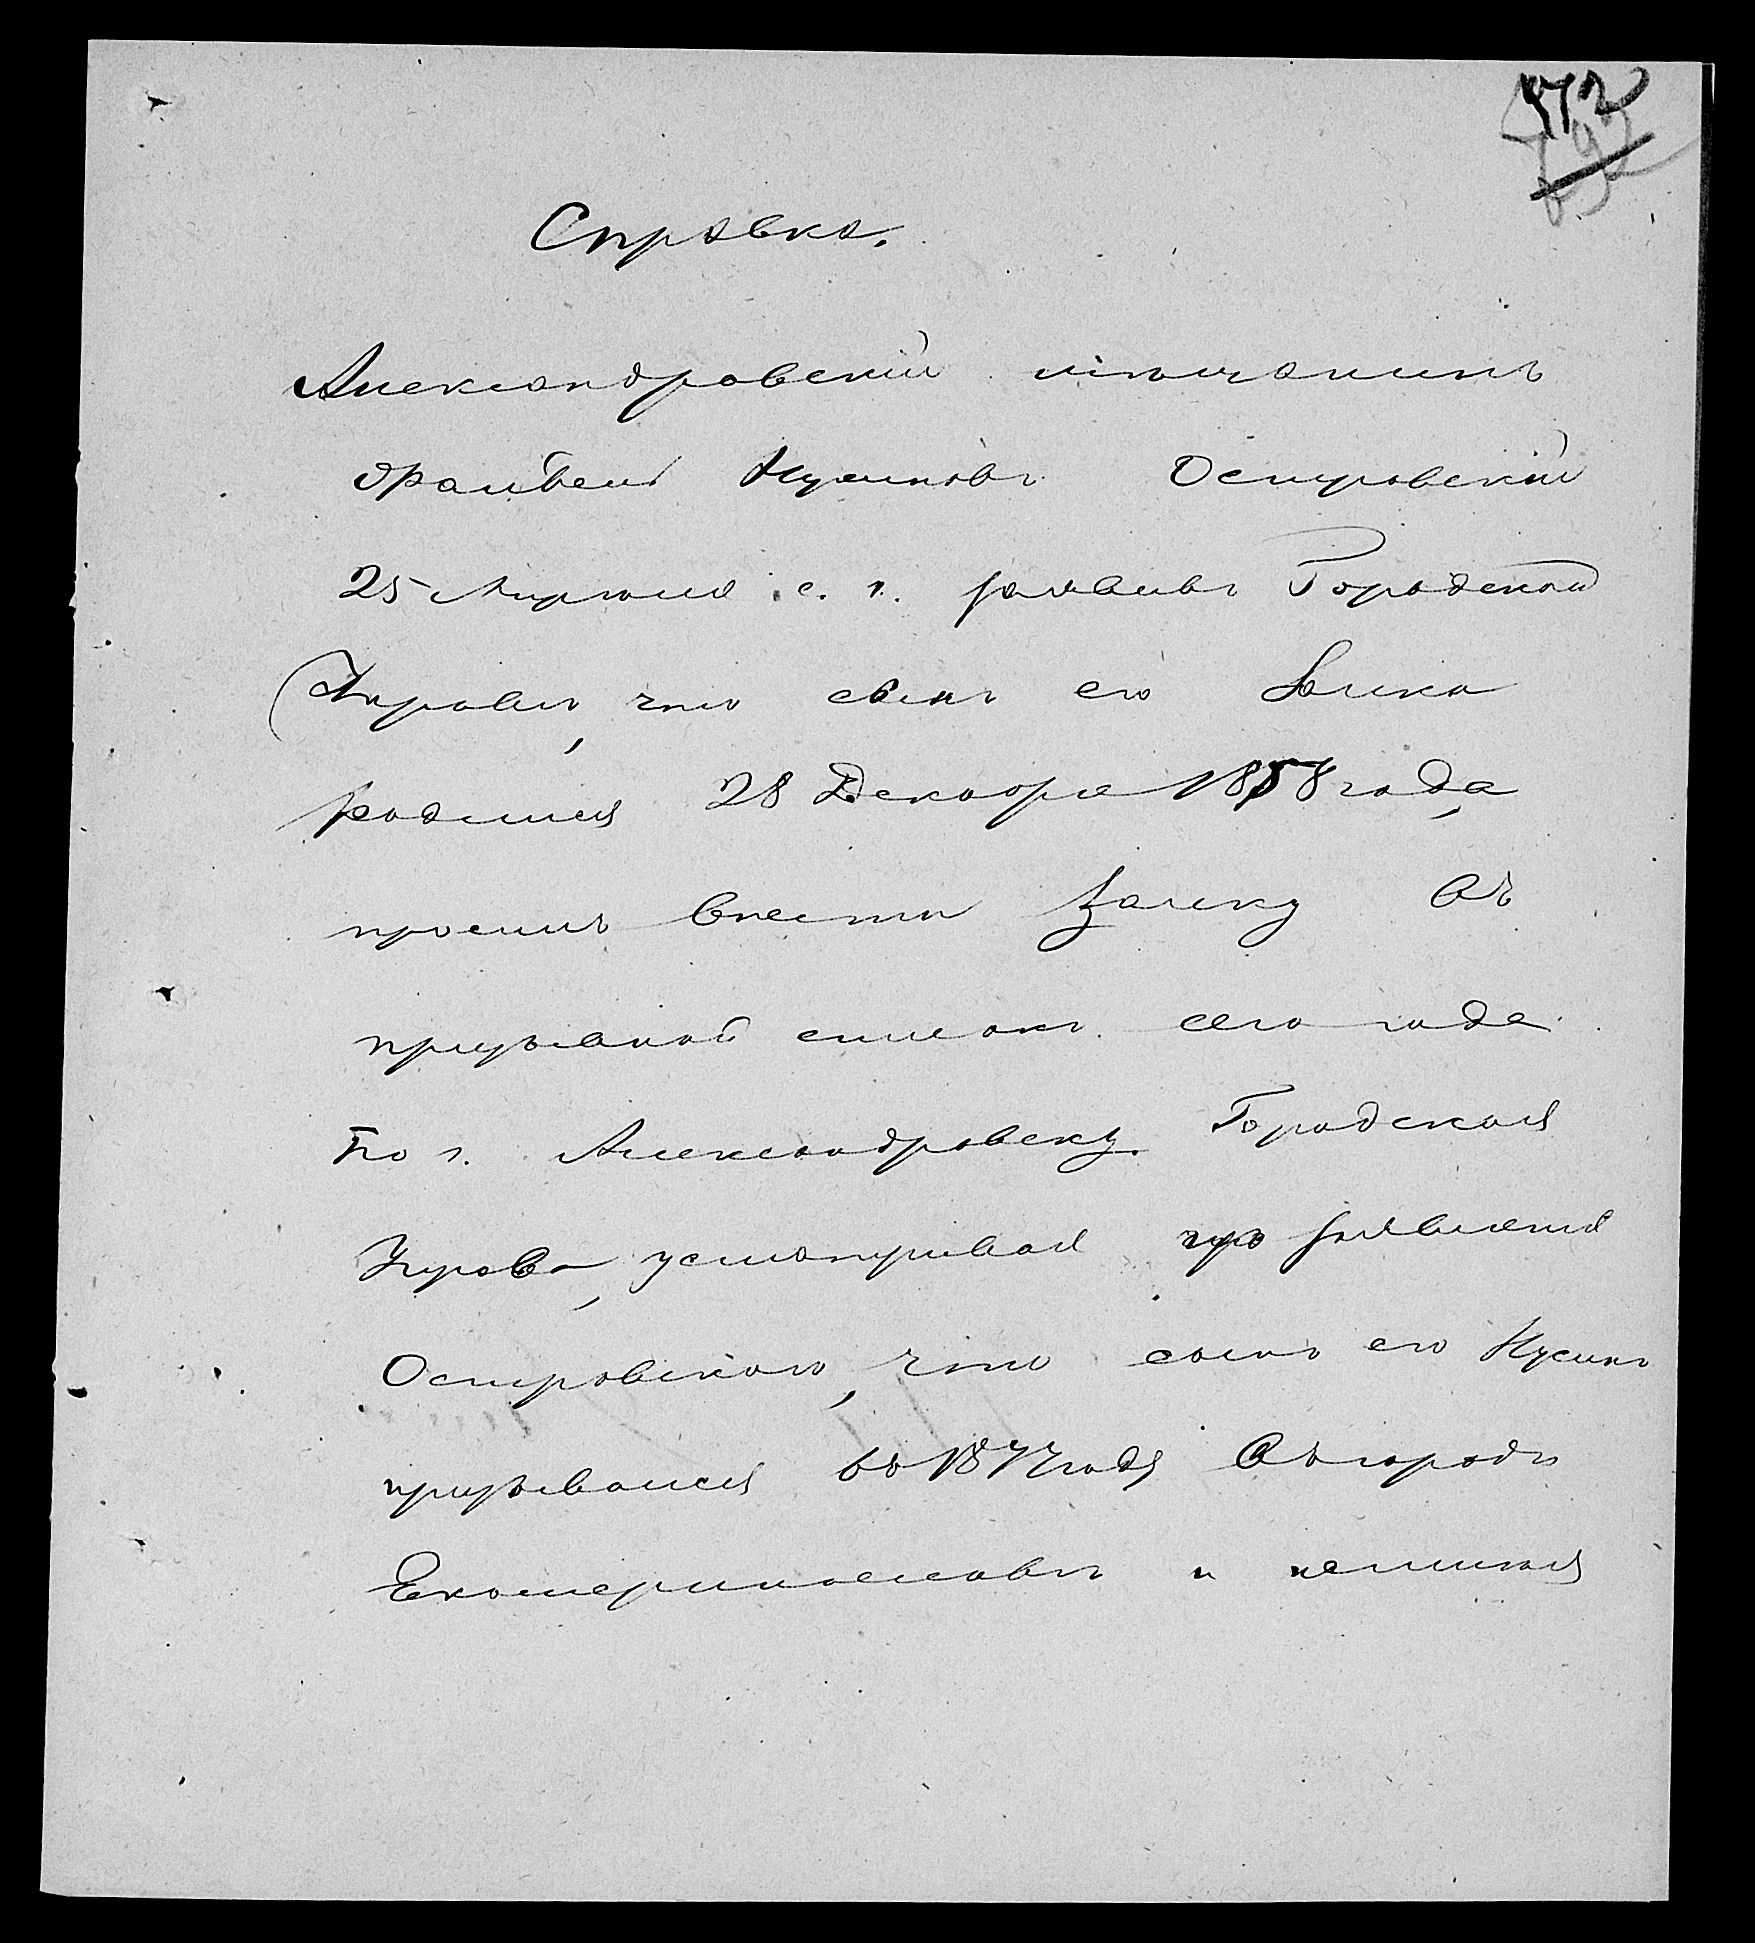 472
692
Справка.
Александровскій мѣщанинъ
Файвель Нусиновъ Островскій
25 Апрѣля с. г. заявивъ Городской
Управѣ, что сынъ его Залика
родился 28 Декабря 1858 года,
просилъ внести Залику въ
призывной списокъ сего года
по г. Александровску. Городская
Управа, усматривая изъ заявленія
Островскаго, что сынъ его Нусинъ
призывался въ 1877 году въ городѣ
Екатеринославѣ и